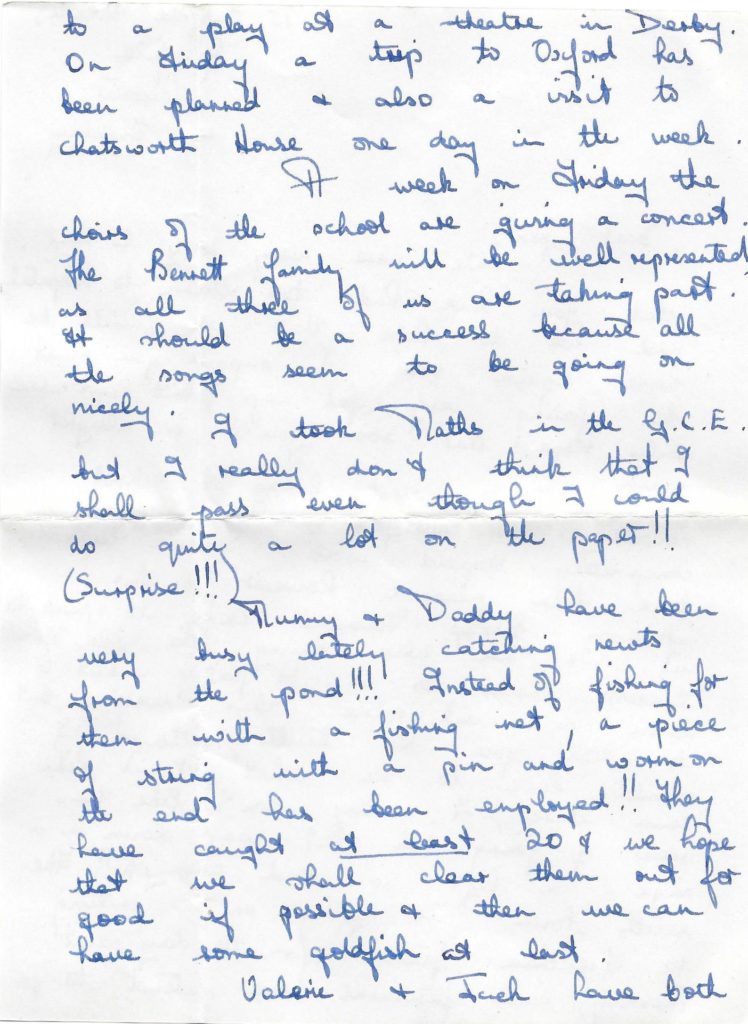 to a play at a theatre in Derby.
On Friday a trip to Oxford has
been planned & also a vissit to
chatsworth House one day in the week.
A week on Friday the
choirs of the school are giving a concert.
The Bennett family will be well represented
as all three of us are taking part.
It should be a success because all
the songs seem to be going on
nicely. I took Maths in the G.C.E.
but I really don't think that I
shall pass even though I could
do quite a lot on the paper!!
(Surprise!!!)
Mummy & Daddy have been
very busy lately catching newts
from the pond!!! Instead of fishing for
them with a fishing net, a piece
of string with a pin and worm on
the end has been employed!! They
have caught at least 20 & we hope
that we shall clear them out for
good if possible & then we can
have some goldfish at last.
Valerie & have both